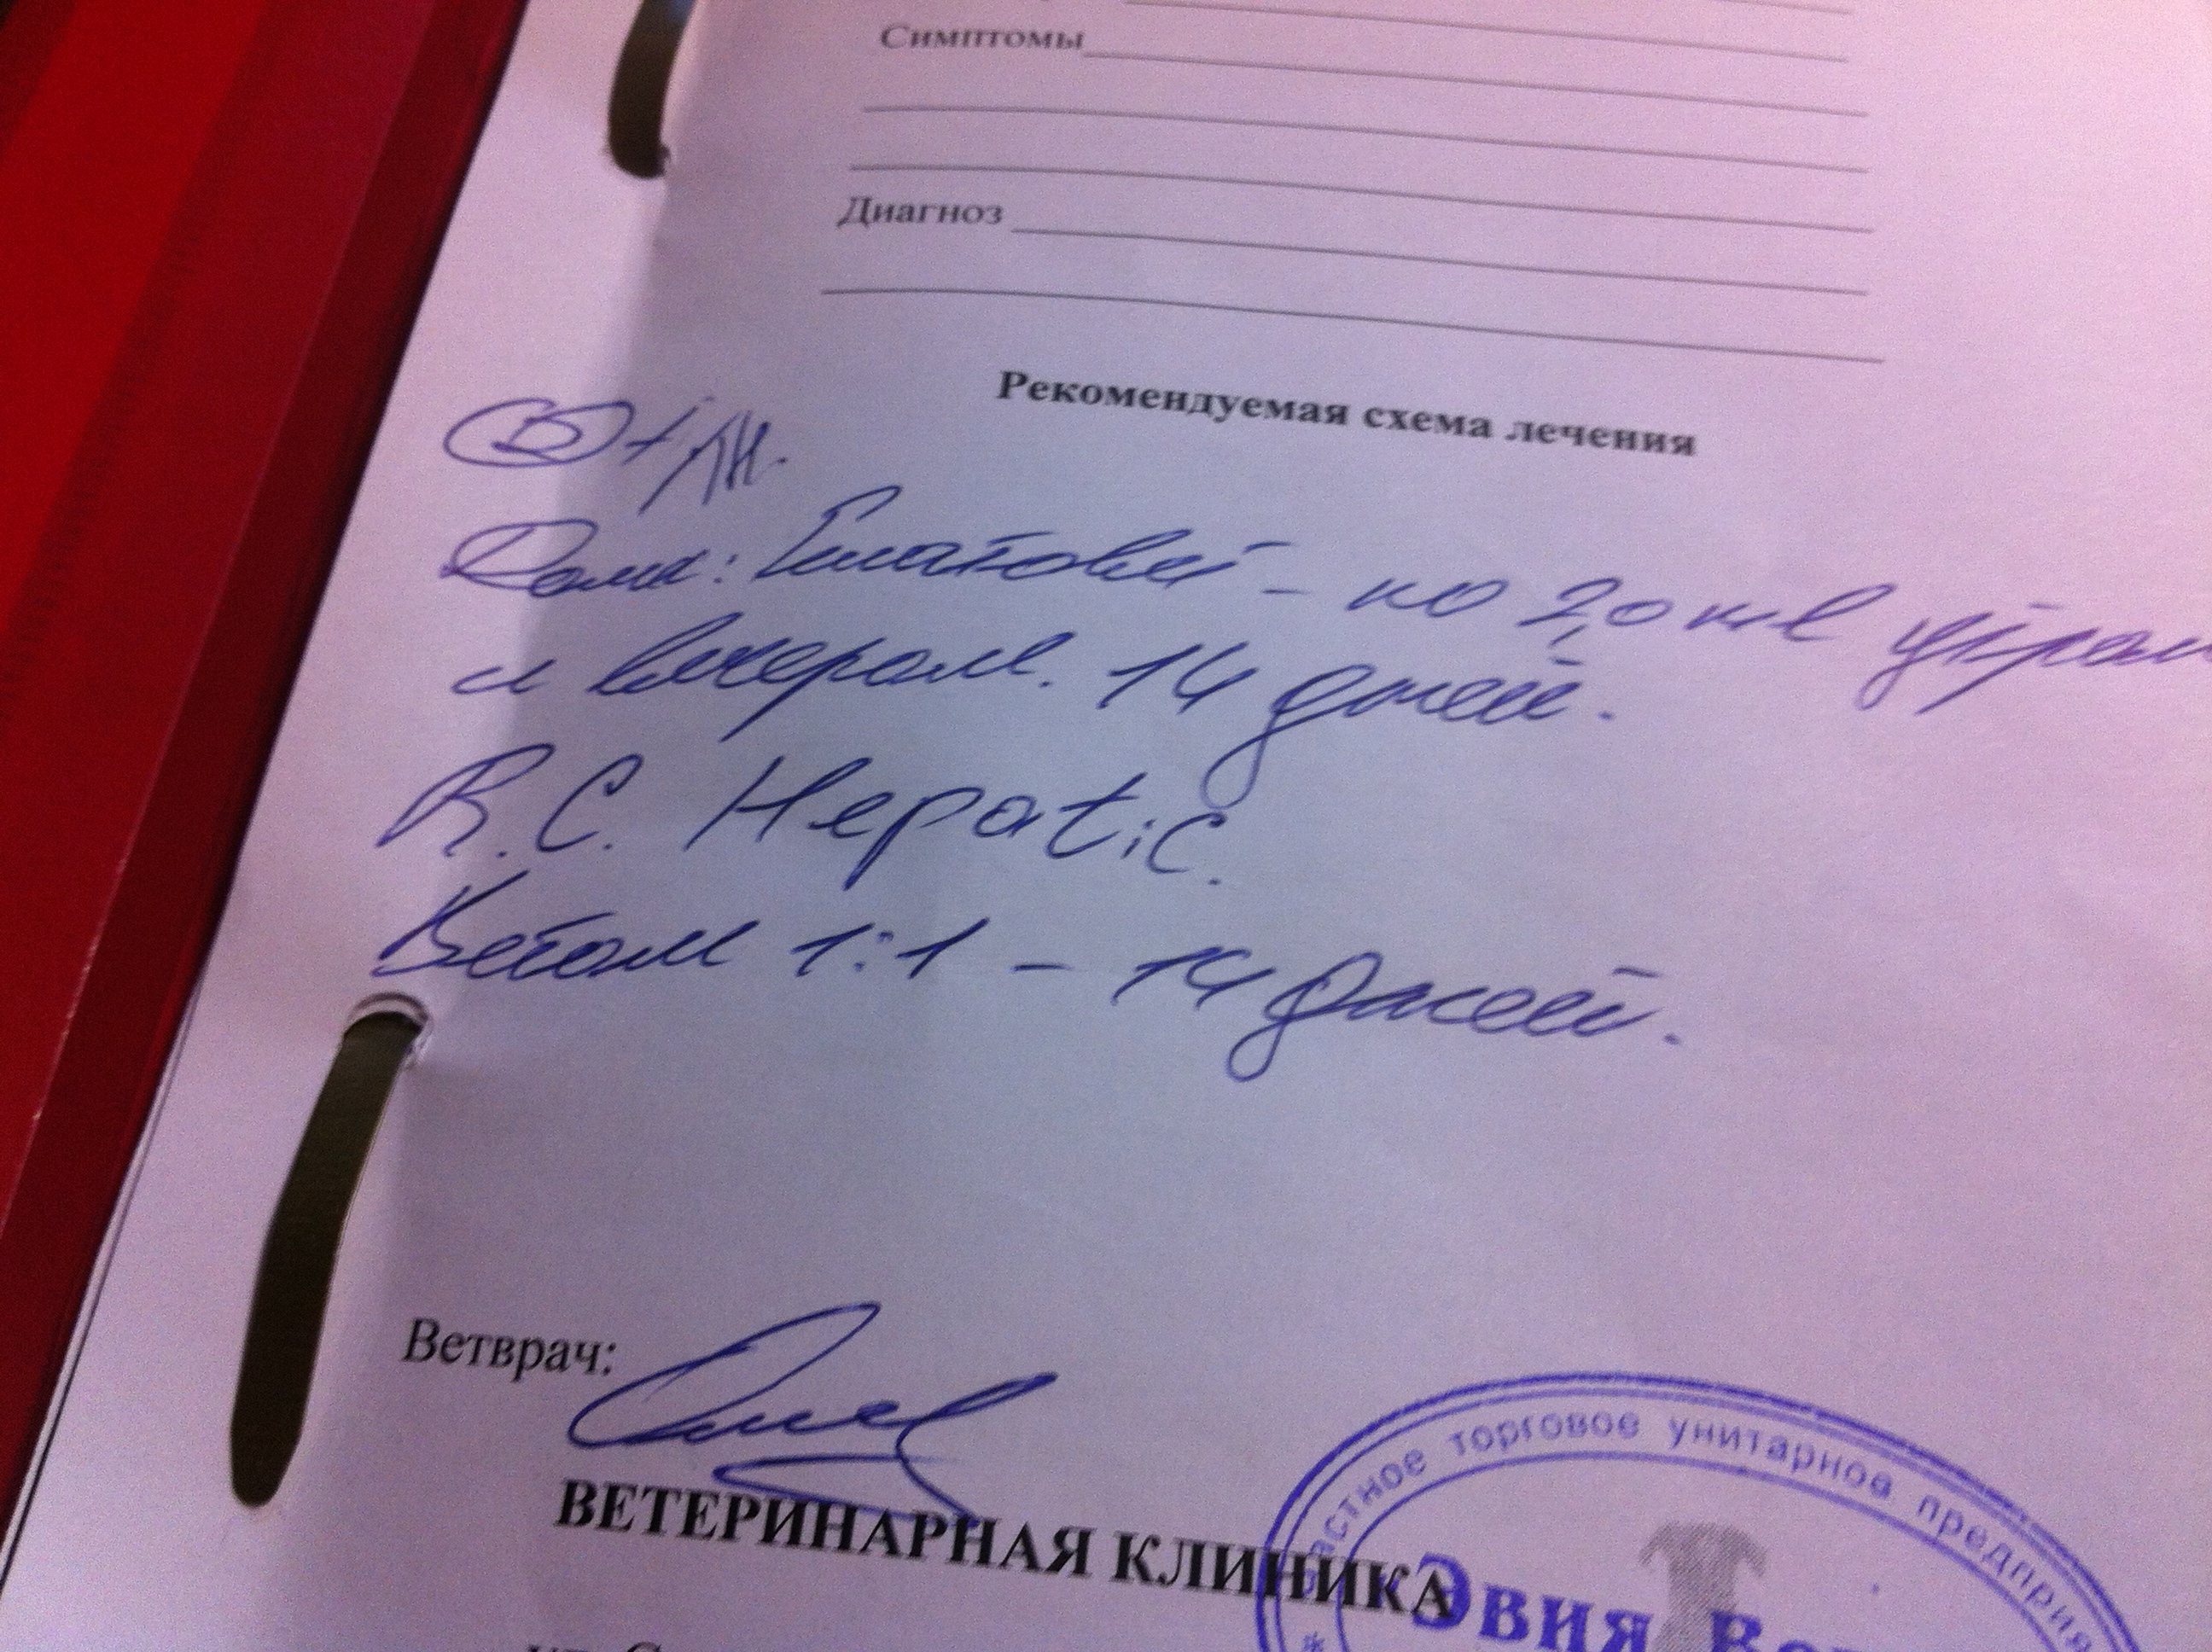 Симптомы
Диагноз
Рекомендуемая схема лечения
Дома: Гепатовет - по 2,0 мл утром
и вечером. 14 дней.
R.C. Hepatic.
Ветом 1:1 - 14 дней.
Ветврач:
ВЕТЕРИНАРНАЯ КЛИНИКА
частное торговое унитарное предприятие
Эвия